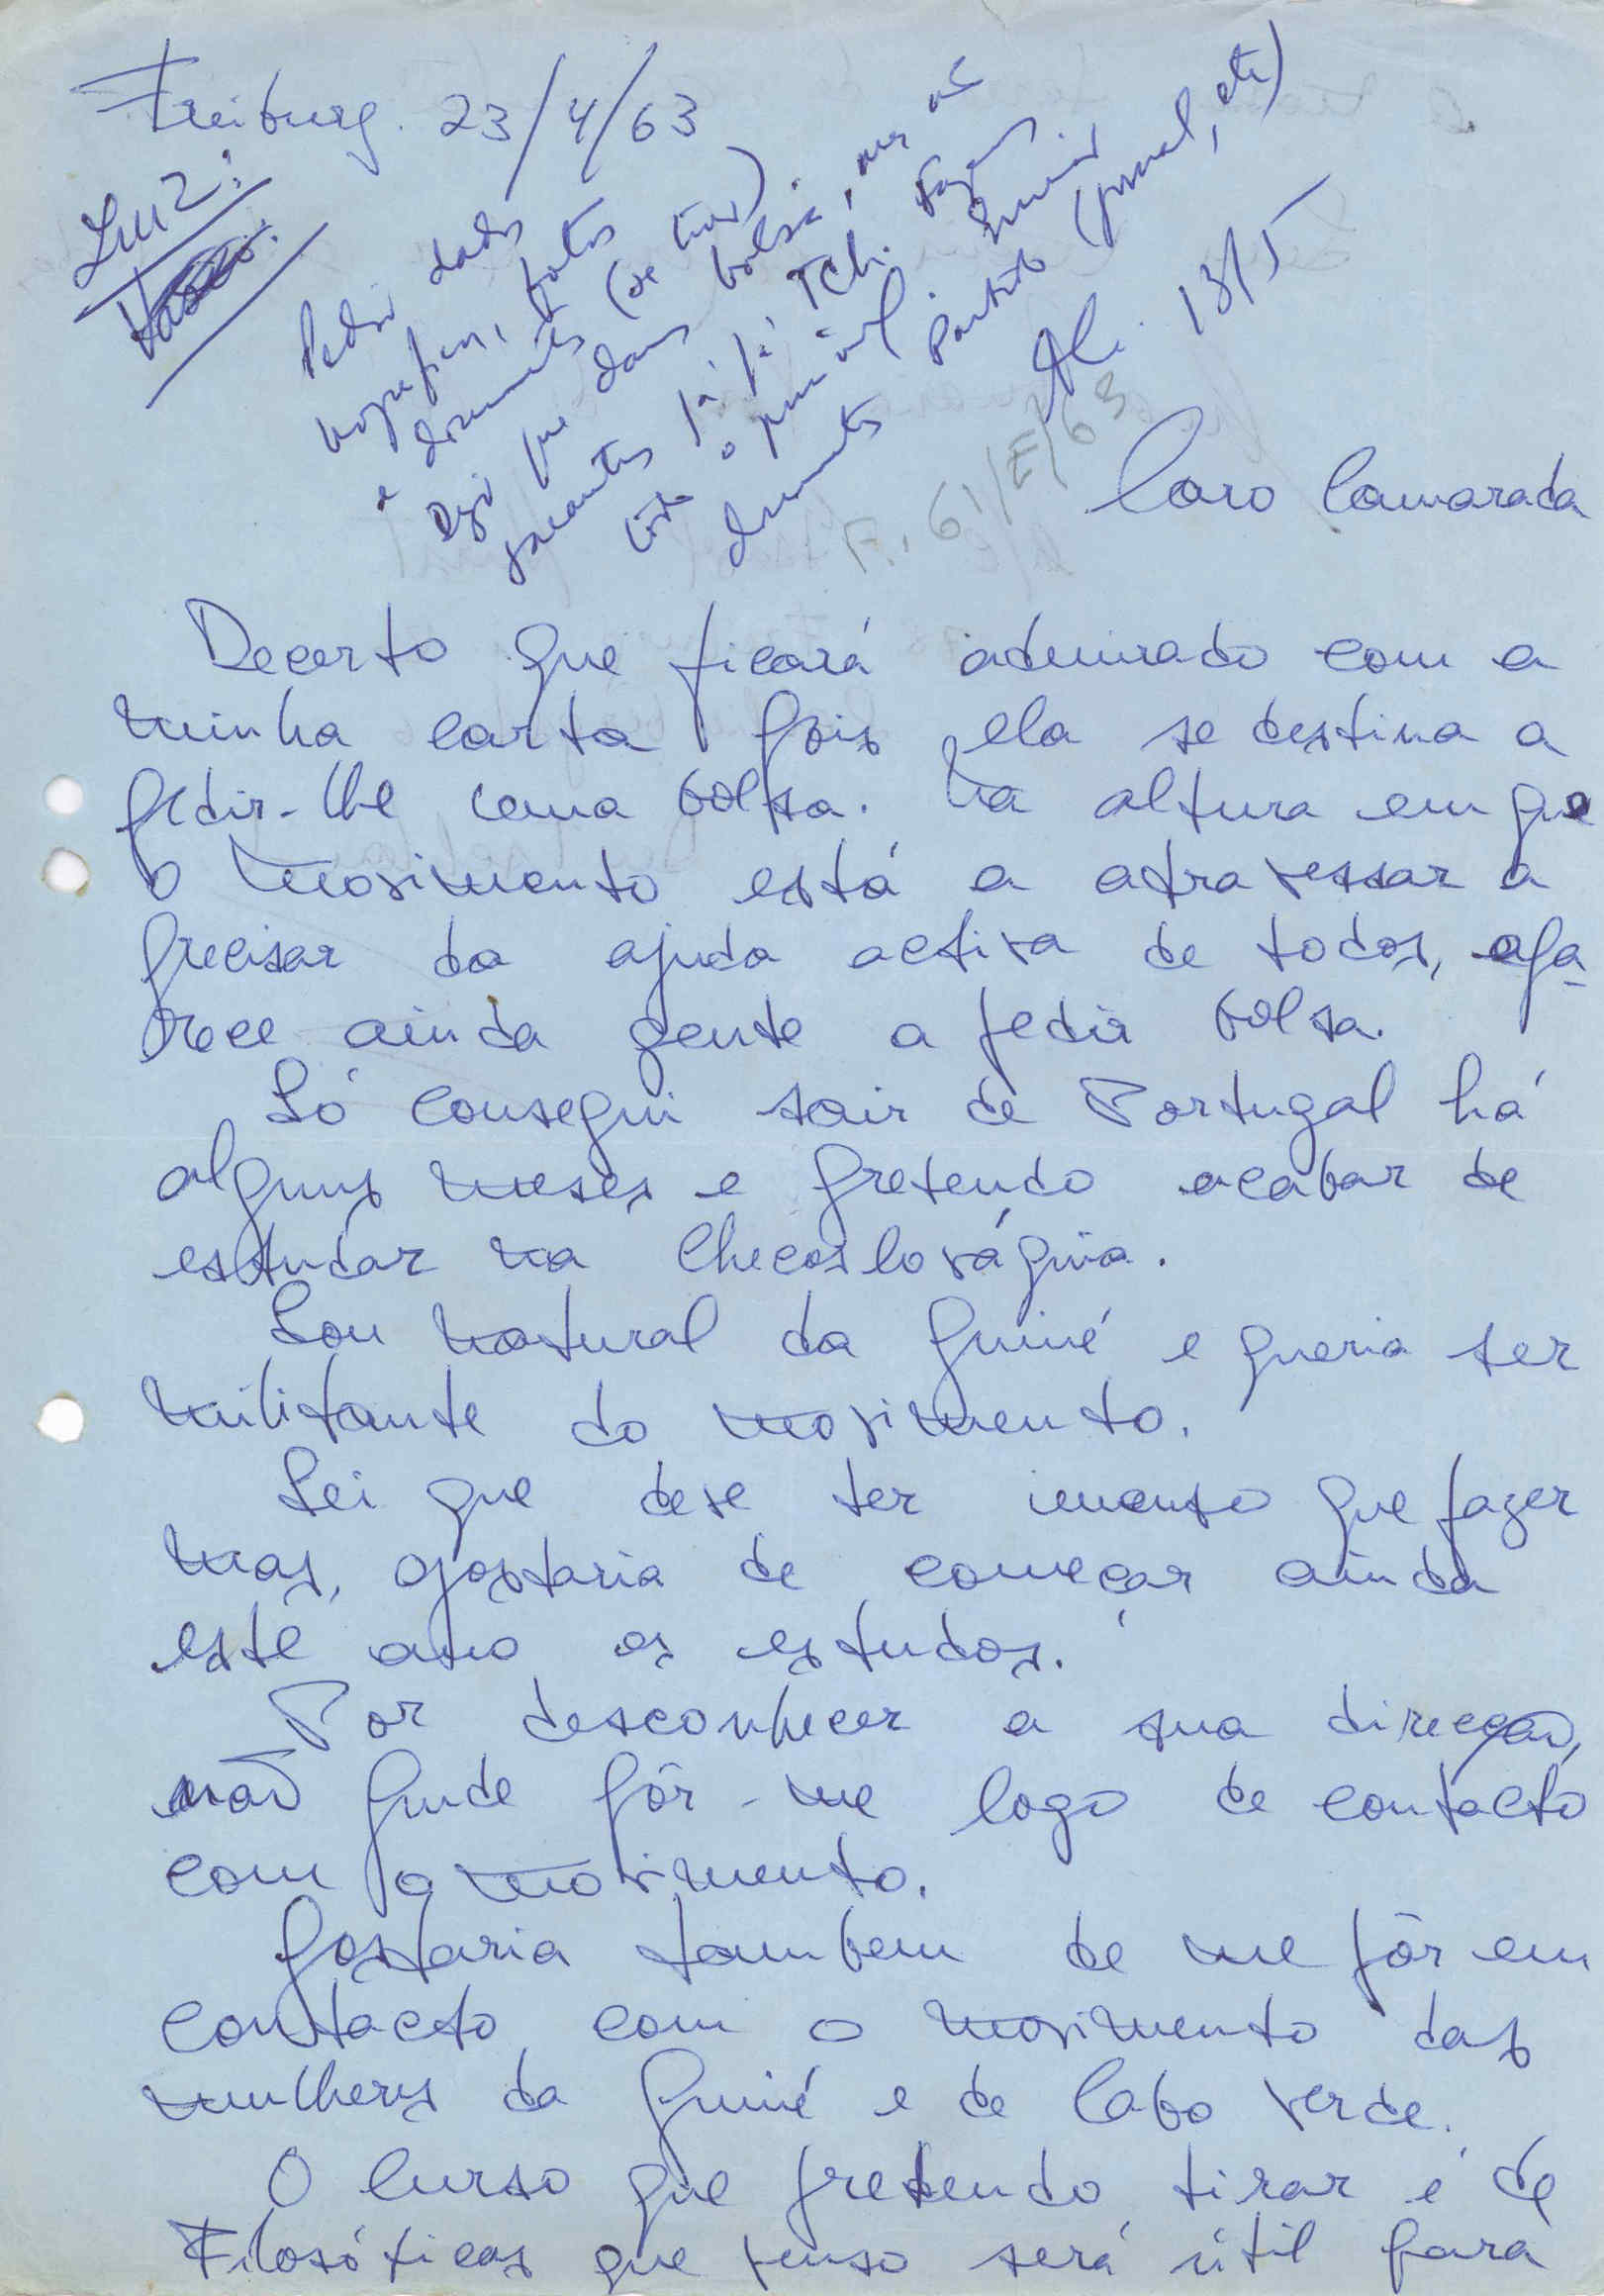 Freiburg. 23/4/63
Luz:
Pedir dados
fotos
e documentos (se tiver).
Dizer que dans bolsa, mas
para já, já Tch.
documentos Partido (jornal, etc)
Al. 13/5
F. 61/E/63
Caro Camarada
Decerto que ficará admirado com a
minha carta pois ela se destina a
pedir-lhe uma bolsa. Na altura em que
o movimento está a atravessar a
precisar da ajuda activa de todos, apa-
rece ainda gente a pedir bolsa.
Só consegui sair de Portugal há
alguns meses e pretendo acabar de
estudar na Checoslováquia.
Sou natural da Guiné e queria ser
militante do movimento.
Sei que deve ter imenso que fazer
mas, gostaria de começar ainda
este ano os estudos.
Por desconhecer a sua direcção,
não pude pôr-me logo de contacto
com o movimento.
Gostaria tambem de me pôr em
contacto com o movimento das
mulheres da Guiné e de Cabo Verde.
O Curso que pretendo tirar é de
Filosóficas que penso será útil para